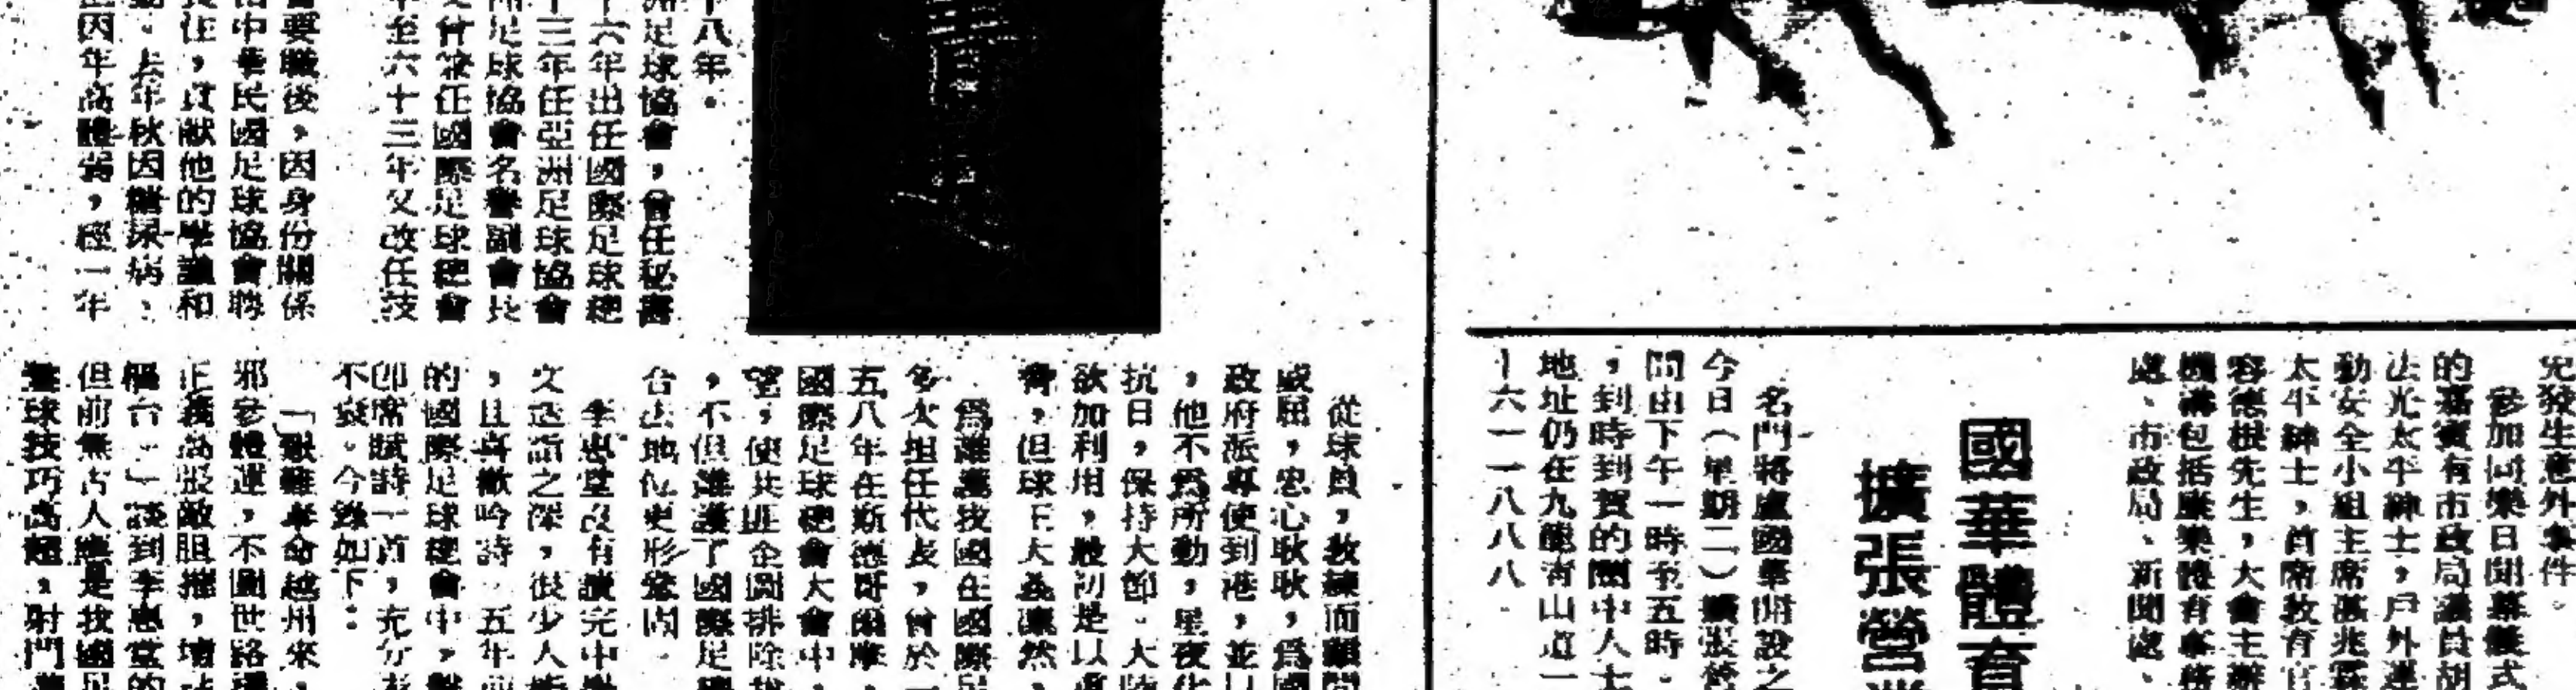 兒發生意外事件。
參加同樂日開幕儀式
的嘉賓有市政局議員胡
法光太平紳士，戶外運
動安全小組主席
太平紳士，首席教育官
容德根先生，大會主辦
機構包括康樂體育事務
處、市政局、新聞處、
國華體育
擴張營業
名門將盧國華開設之
今日（星期二）擴張營
間由下午一時至五時．
，到時到賀的圈中人士
地址仍在九龍青山道一
十六一一八八八．
十八年．
洲足球協會，曾任秘書
十六年出任國際足球總
十三年任亞洲足球協會
洲足球協會名譽副會長
又曾兼任國際足球總會
年至六十三年又改任技
會要職後，因身份關係
由中華民國足球協會聘
責任，貢献他的學識和
動．去年秋因糖尿病、
症因年高體弱，經一年
從球員，教練而顧問
威屈，忠心耿耿，為國
政府派專使到港，並以
，他不為所動，星夜化
抗日，保持大節．大陸
欲加利用，最初是以重
脅，但球王大義凜然，
為維護我國在國際足
多次担任代表，曾於一
五八年在斯德哥爾摩，
國際足球總會大會中，
望，使共匪企圖排除我
，不但維護了國際足總
合法地位更形鞏固．
李惠堂沒有讀完中學
文造詣之深，很少人能
，且喜歡吟詩．五年前
的國際足球總會中，
即席賦詩一首，充分表
不衰。今錄如下：
「歌難革命越州來，
邪參體運，不圖世路
正義高張敵胆摧，
福台．」談到李惠堂的
但前無古人應是我國足
球技巧高超，射門